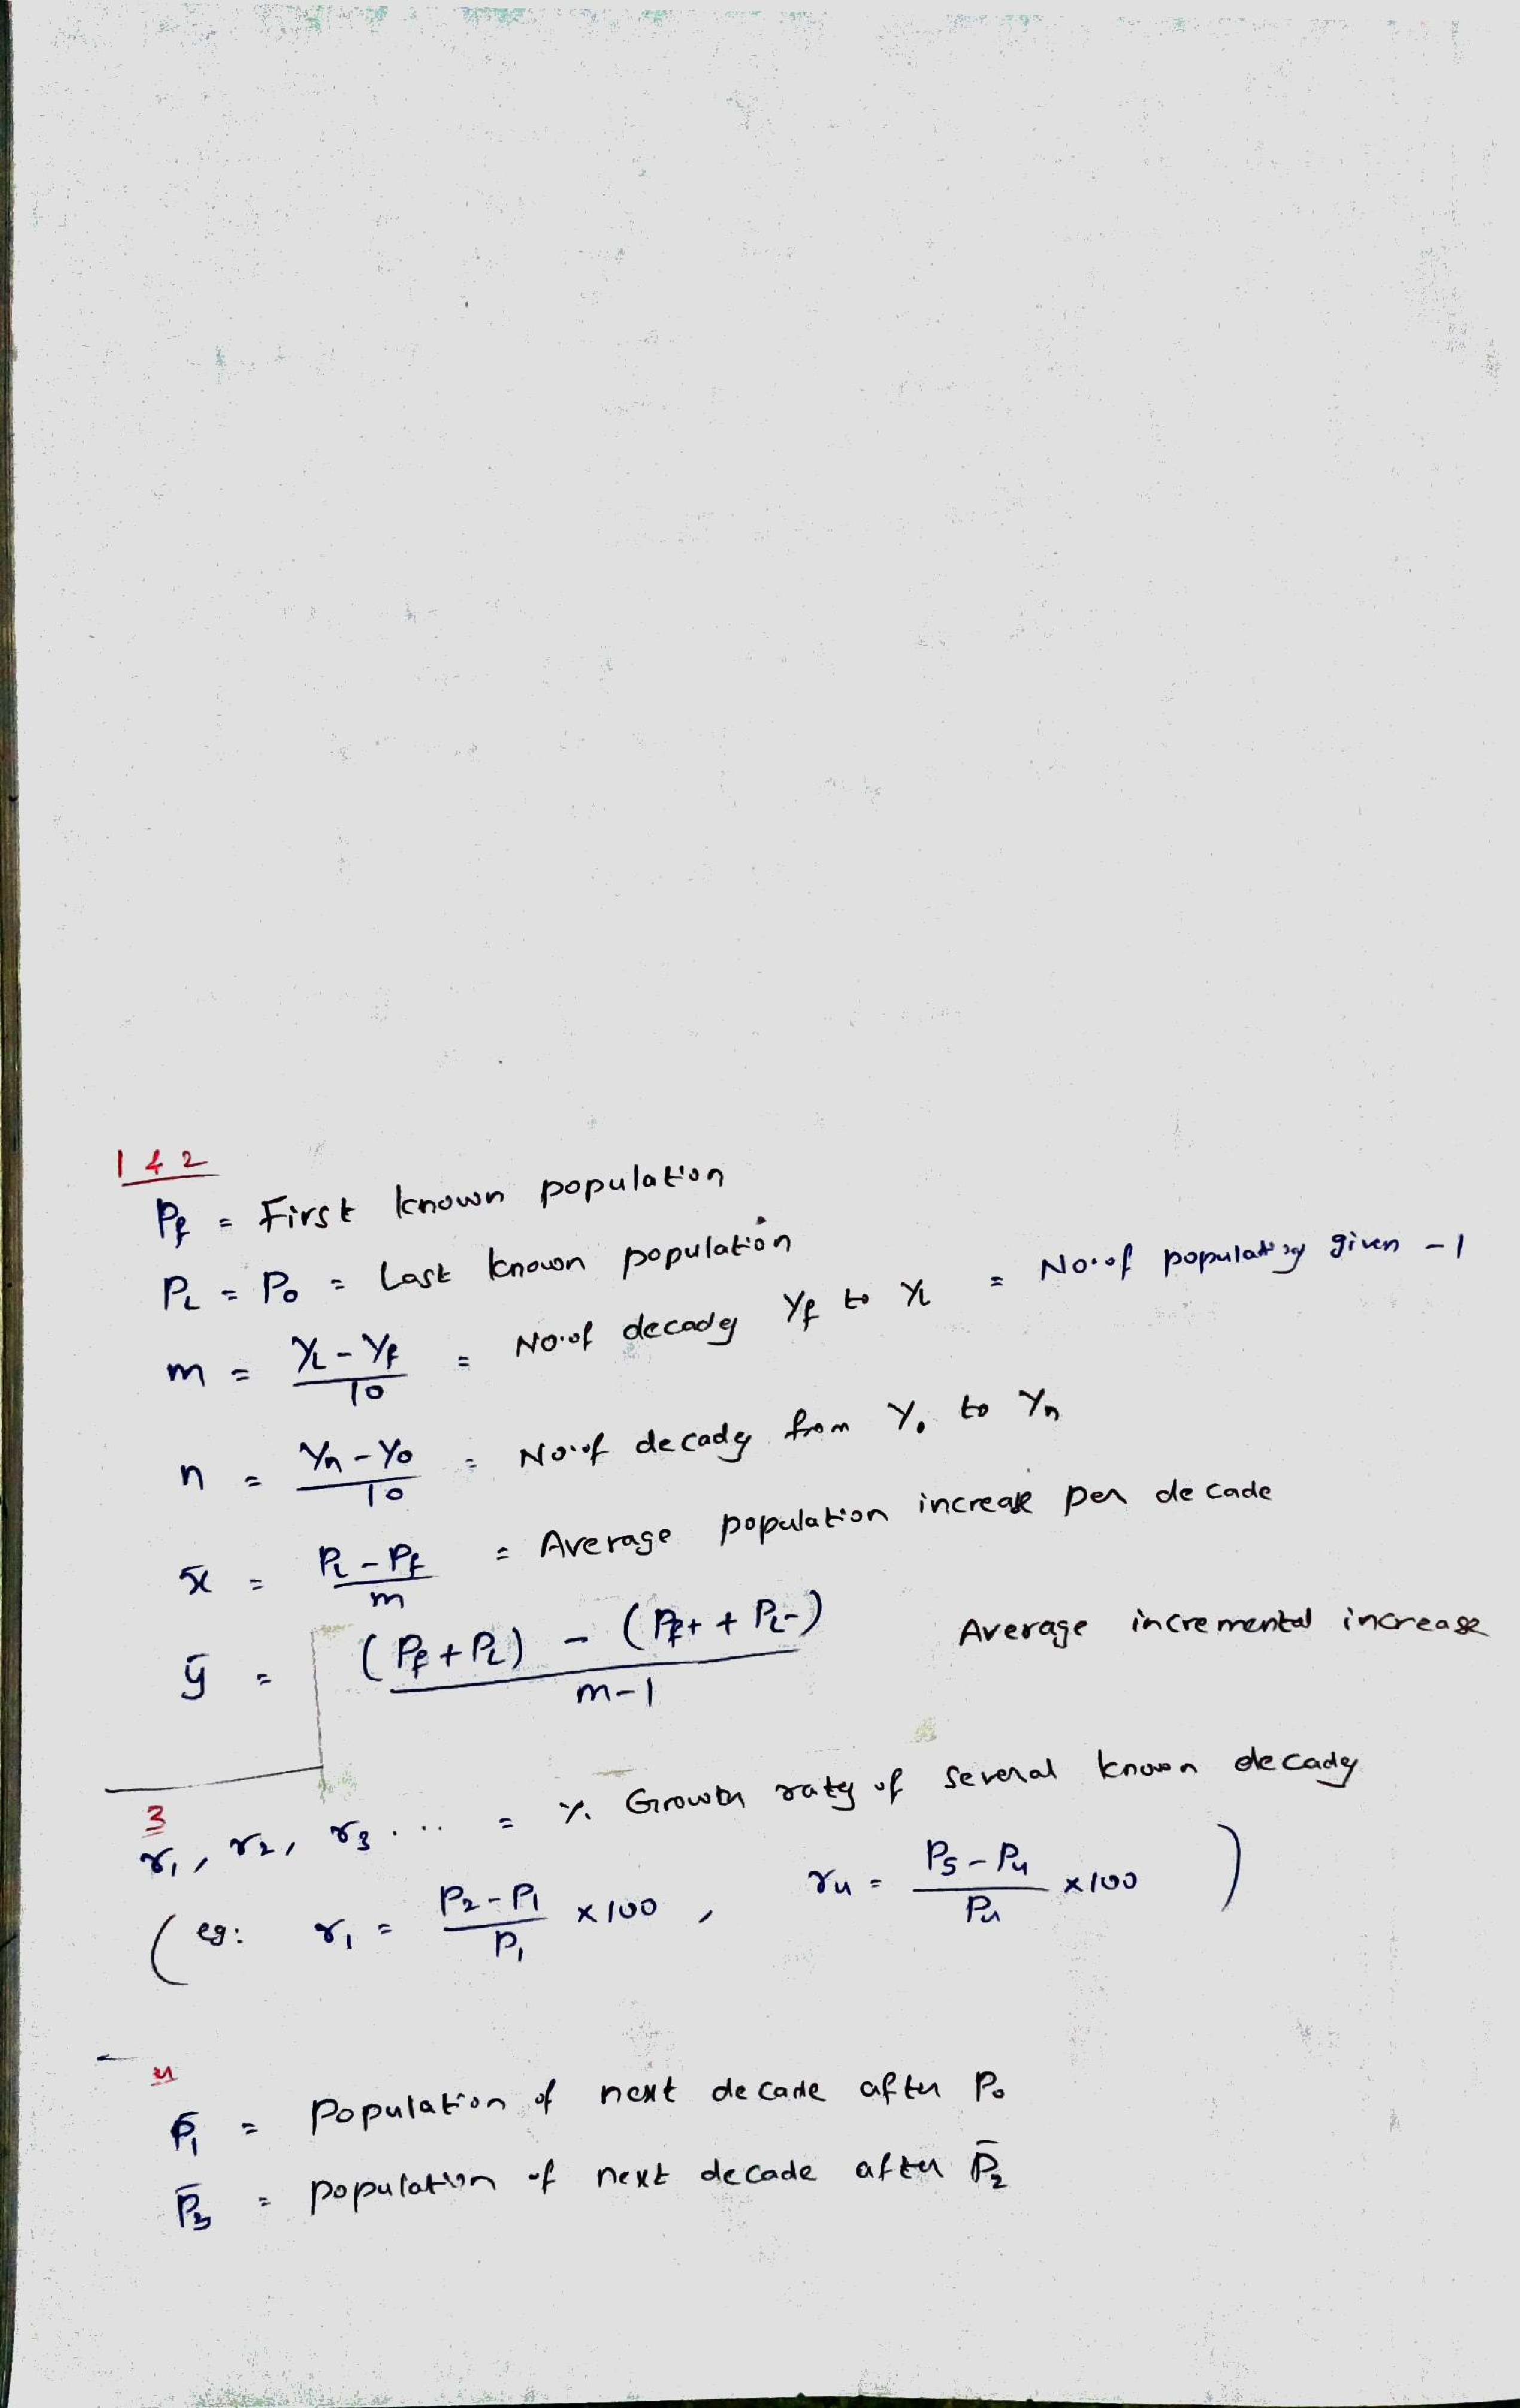 1 & 2
Pf = First known population
PL = Po = Last known population
m = (YL - Yf)/10 = No. of decades Yf to YL = No. of populations given - 1
n = (Yn - Yo)/10 = No. of decades from Yo to Yn
x̄ = (PL - Pf)/m = Average population increase per decade
ȳ = ((Pf + PL) - (Pf+ + PL-))/(m-1) Average incremental increase
3
r1, r2, r3 ... = % Growth rates of several known decades
(eg: r1 = (P2 - P1)/P1 x 100, r4 = (P5 - P4)/P4 x 100)
4
P̄1 = Population of next decade after Po
P̄3 = population of next decade after P̄2